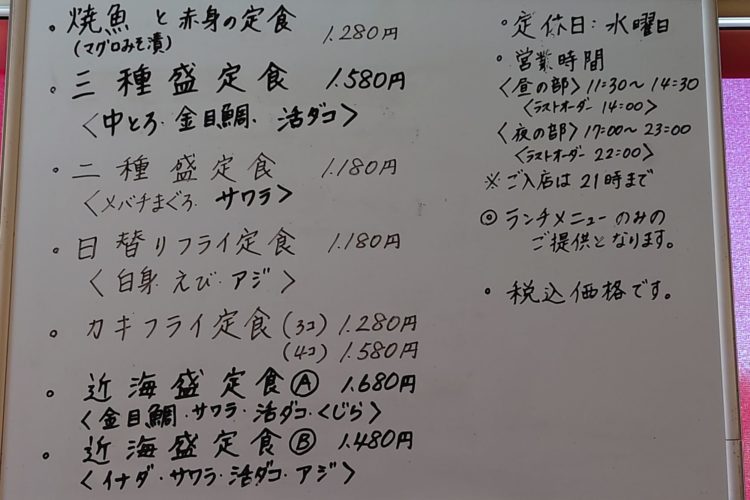 ・焼魚と赤身の定食 1.280円
(マグロみそ漬)
・三種盛定食 1.580円
〈中とろ・金目鯛・活ダコ〉
・二種盛定食 1.180円
〈メバチまぐろ・サワラ〉
・日替りフライ定食 1.180円
〈白身・えび・アジ〉
・カキフライ定食(3コ) 1.280円
(4コ) 1.580円
・近海盛定食Ⓐ 1.680円
〈金目鯛・サワラ・活ダコ・くじら〉
・近海盛定食Ⓑ 1.480円
〈イナダ・サワラ・活ダコ・アジ〉
・定休日:水曜日
・営業時間
〈昼の部〉11:30〜14:30
〈ラストオーダー 14:00〉
〈夜の部〉17:00〜23:00
〈ラストオーダー 22:00〉
※ご入店は21時まで
◎ランチメニューのみの
ご提供となります。
・税込価格です。